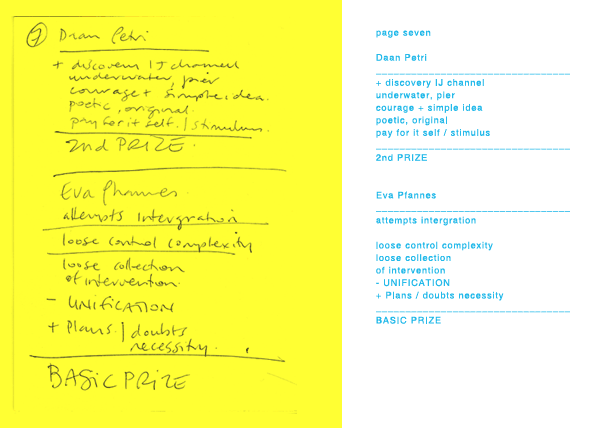 7 Daan Petri
+ discovern IJ channel
underwater, pier
courage + simple idea.
poetic, original.
pay for it self. / stimulus.
2nd PRIZE.
Eva Pfannes.
attempts Intergration
loose control complexity
loose collection
of intervention.
- UNIFICATION
+ Plans. / doubts
necessity.
BASIC PRIZE
page seven
Daan Petri
+ discovery IJ channel
underwater, pier
courage + simple idea
poetic, original
pay for it self / stimulus
2nd PRIZE
Eva Pfannes
attempts intergration
loose control complexity
loose collection
of intervention
- UNIFICATION
+ Plans / doubts necessity
BASIC PRIZE